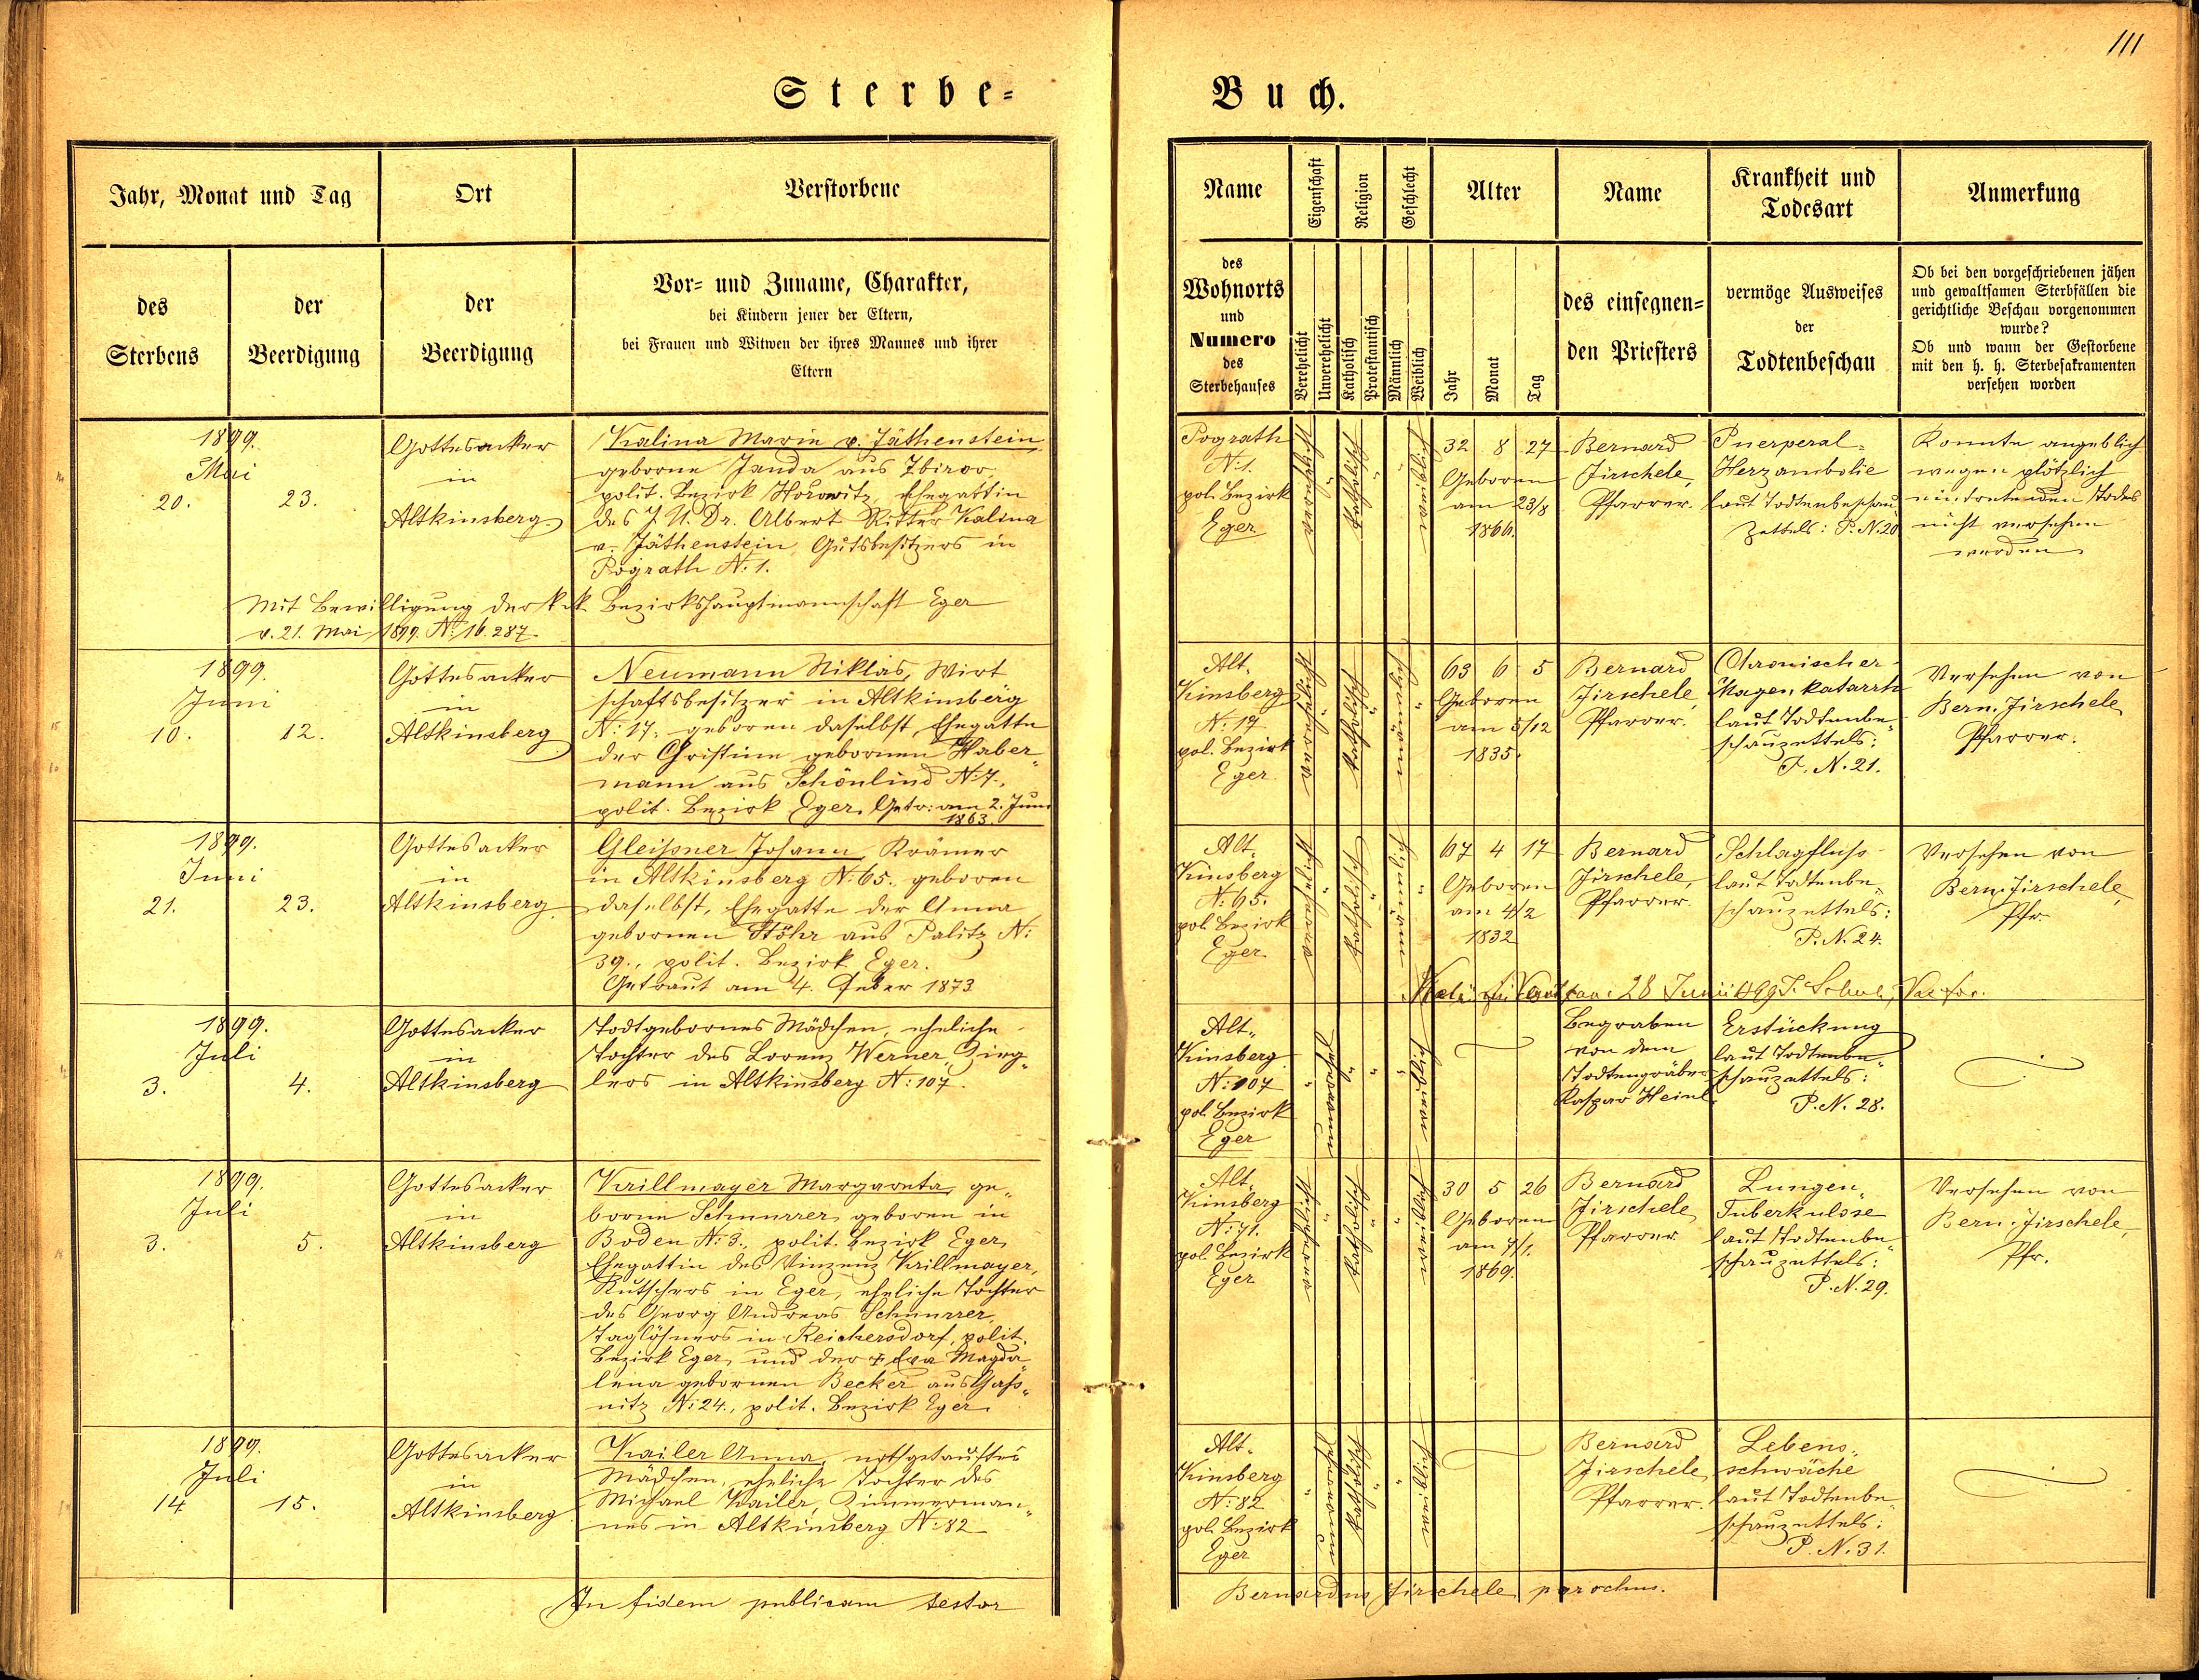 111
Sterbe=
Buch.
Jahr, Monat und Tag
Ort
Verstorbene
des
Sterbens
der
Beerdigung
der
Beerdigung
Vor= und Zuname, Charakter,
bei Kindern jener der Eltern,
bei Frauen und Witwen der ihres Mannes und ihrer
Eltern
Name
Eigenschaft
Religion
Geschlecht
Alter
Name
Krankheit und
Todesart
Anmerkung
des
Wohnorts
und
Numero
des
Sterbehauses
Verehelicht
Unverehelicht
Katholisch
Protestantisch
Männlich
Weiblich
Jahr
Monat
Tag
des einsegnen=
den Priesters
vermöge Ausweises
der
Todtenbeschau
Ob bei den vorgeschriebenen jähen
und gewaltsamen Sterbfällen die
gerichtliche Beschau vorgenommen
wurde?
Ob und wann der Gestorbene
mit den h. h. Sterbesakramenten
versehen worden
1899.
Mai
20.
23.
Gottesacker
in
Altkinsberg
Kalina Marie v. Jäthenstein,
geborne Janda aus Zbirov
polit. Bezirk Hořowitz, Ehegattin
des J. U. Dr. Albert Ritter Kalina
v. Jäthenstein, Gutsbesitzers in
Pograth N: 1.
Mit Bewilligung der k. k. Bezirkshauptmannschaft Eger
v. 21. Mai 1899. N: 16.287
Pograth
N: 1.
pol. Bezirk
Eger
verehelicht
katholisch
weiblich
32 8 27
Geboren
am 23/8
1866.
Bernard
Jirschele,
Pfarrer.
Puerperal=
Herzambolie
laut Todtenbeschau
zettels: P. N. 20
Konnte angeblich
wegen plötzlich
eintretenden Todes
nicht versehen
werden
1899.
Juni
10.
12.
Gottesacker
in
Altkinsberg
Neumann Niklas, Wirt
schaftsbesitzer in Altkinsberg
N: 17. geboren daselbst, Ehegatte
der Christine gebornen Haber„
mann aus Schönlind N: 7.,
polit. Bezirk Eger. Getr: am 2. Juni
1863.
Alt„
Kinsberg
N: 17
pol. Bezirk
Eger
verehelicht
katholisch
männlich
63 6 5
Geboren
am 5/12
1835.
Bernard
Jirschele,
Pfarrer.
Chronischer
Magenkatarrh
laut Todtenbe„
schauzettels:
P. N. 21.
Versehen von
Bern. Jirschele,
Pfarrer.
1899.
Juni
21.
23.
Gottesacker
in
Altkinsberg
Gleißner Johann, Krämer
in Altkinsberg N: 65. geboren
daselbst, Ehegatte der Anna
gebornen Stöhr aus Palitz N:
39., polit. Bezirk Eger.
Getraut am 4. Feber 1873
Alt„
Kinsberg
N: 65.
pol. Bezirk
Eger
verehelicht
katholisch
männlich
67 4 17
Geboren
am 4/2
1832
Bernard
Jirschele,
Pfarrer.
Schlagfluss
laut Todtenbe„
schauzettels:
P. N. 24.
Versehen von
Bern. Jirschele,
Pfr.
28 Juni 1899
1899.
Juli
3.
4.
Gottesacker
in
Altkinsberg
Todtgebornes Mädchen, eheliche
Tochter des Lorenz Werner, Zieg„
lers in Altkinsberg N: 107.
Alt„
Kinsberg
N: 107
pol. Bezirk
Eger
unverehel.
weiblich
Begraben
von dem
Todtengräber
Kaspar Heinl
Erstückung
laut Todtenbe„
schauzettels:
P. N. 28.
1899.
Juli
3.
5.
Gottesacker
in
Altkinsberg
Krillmayer Margareta, ge„
borne Schnurrer, geboren in
Boden N: 3., polit. Bezirk Eger,
Ehegattin des Vinzenz Krillmayer,
Kutschers in Eger, eheliche Tochter
des Georg Andreas Schnurrer,
Taglöhners in Reichersdorf, polit.
Bezirk Eger, und der + Eva Magda„
lena gebornen Becker aus Gaß„
nitz N: 24., polit. Bezirk Eger.
Alt„
Kinsberg
N: 71.
pol. Bezirk
Eger
verehelicht
katholisch
weiblich
30 5 26
Geboren
am 7/1.
1869.
Bernard
Jirschele,
Pfarrer
Lungen„
Tuberkulose
laut Todtenbe„
schauzettels:
P. N. 29.
Versehen von
Bern. Jirschele,
Pfr.
1899.
Juli
14
15.
Gottesacker
in
Altkinsberg
Krailer Anna, nothgetauftes
Mädchen, eheliche Tochter des
Michael Krailer, Zimmerman„
nes in Altkinsberg N: 82
Alt„
Kinsberg
N: 82
pol. Bezirk
Eger
unverehel.
katholisch
weiblich
Bernard
Jirschele,
Pfarrer.
Lebens„
schwäche
laut Todtenbe„
schauzettels:
P. N. 31.
In fidem publicam testor
Bernardus Jirschele, parochus.